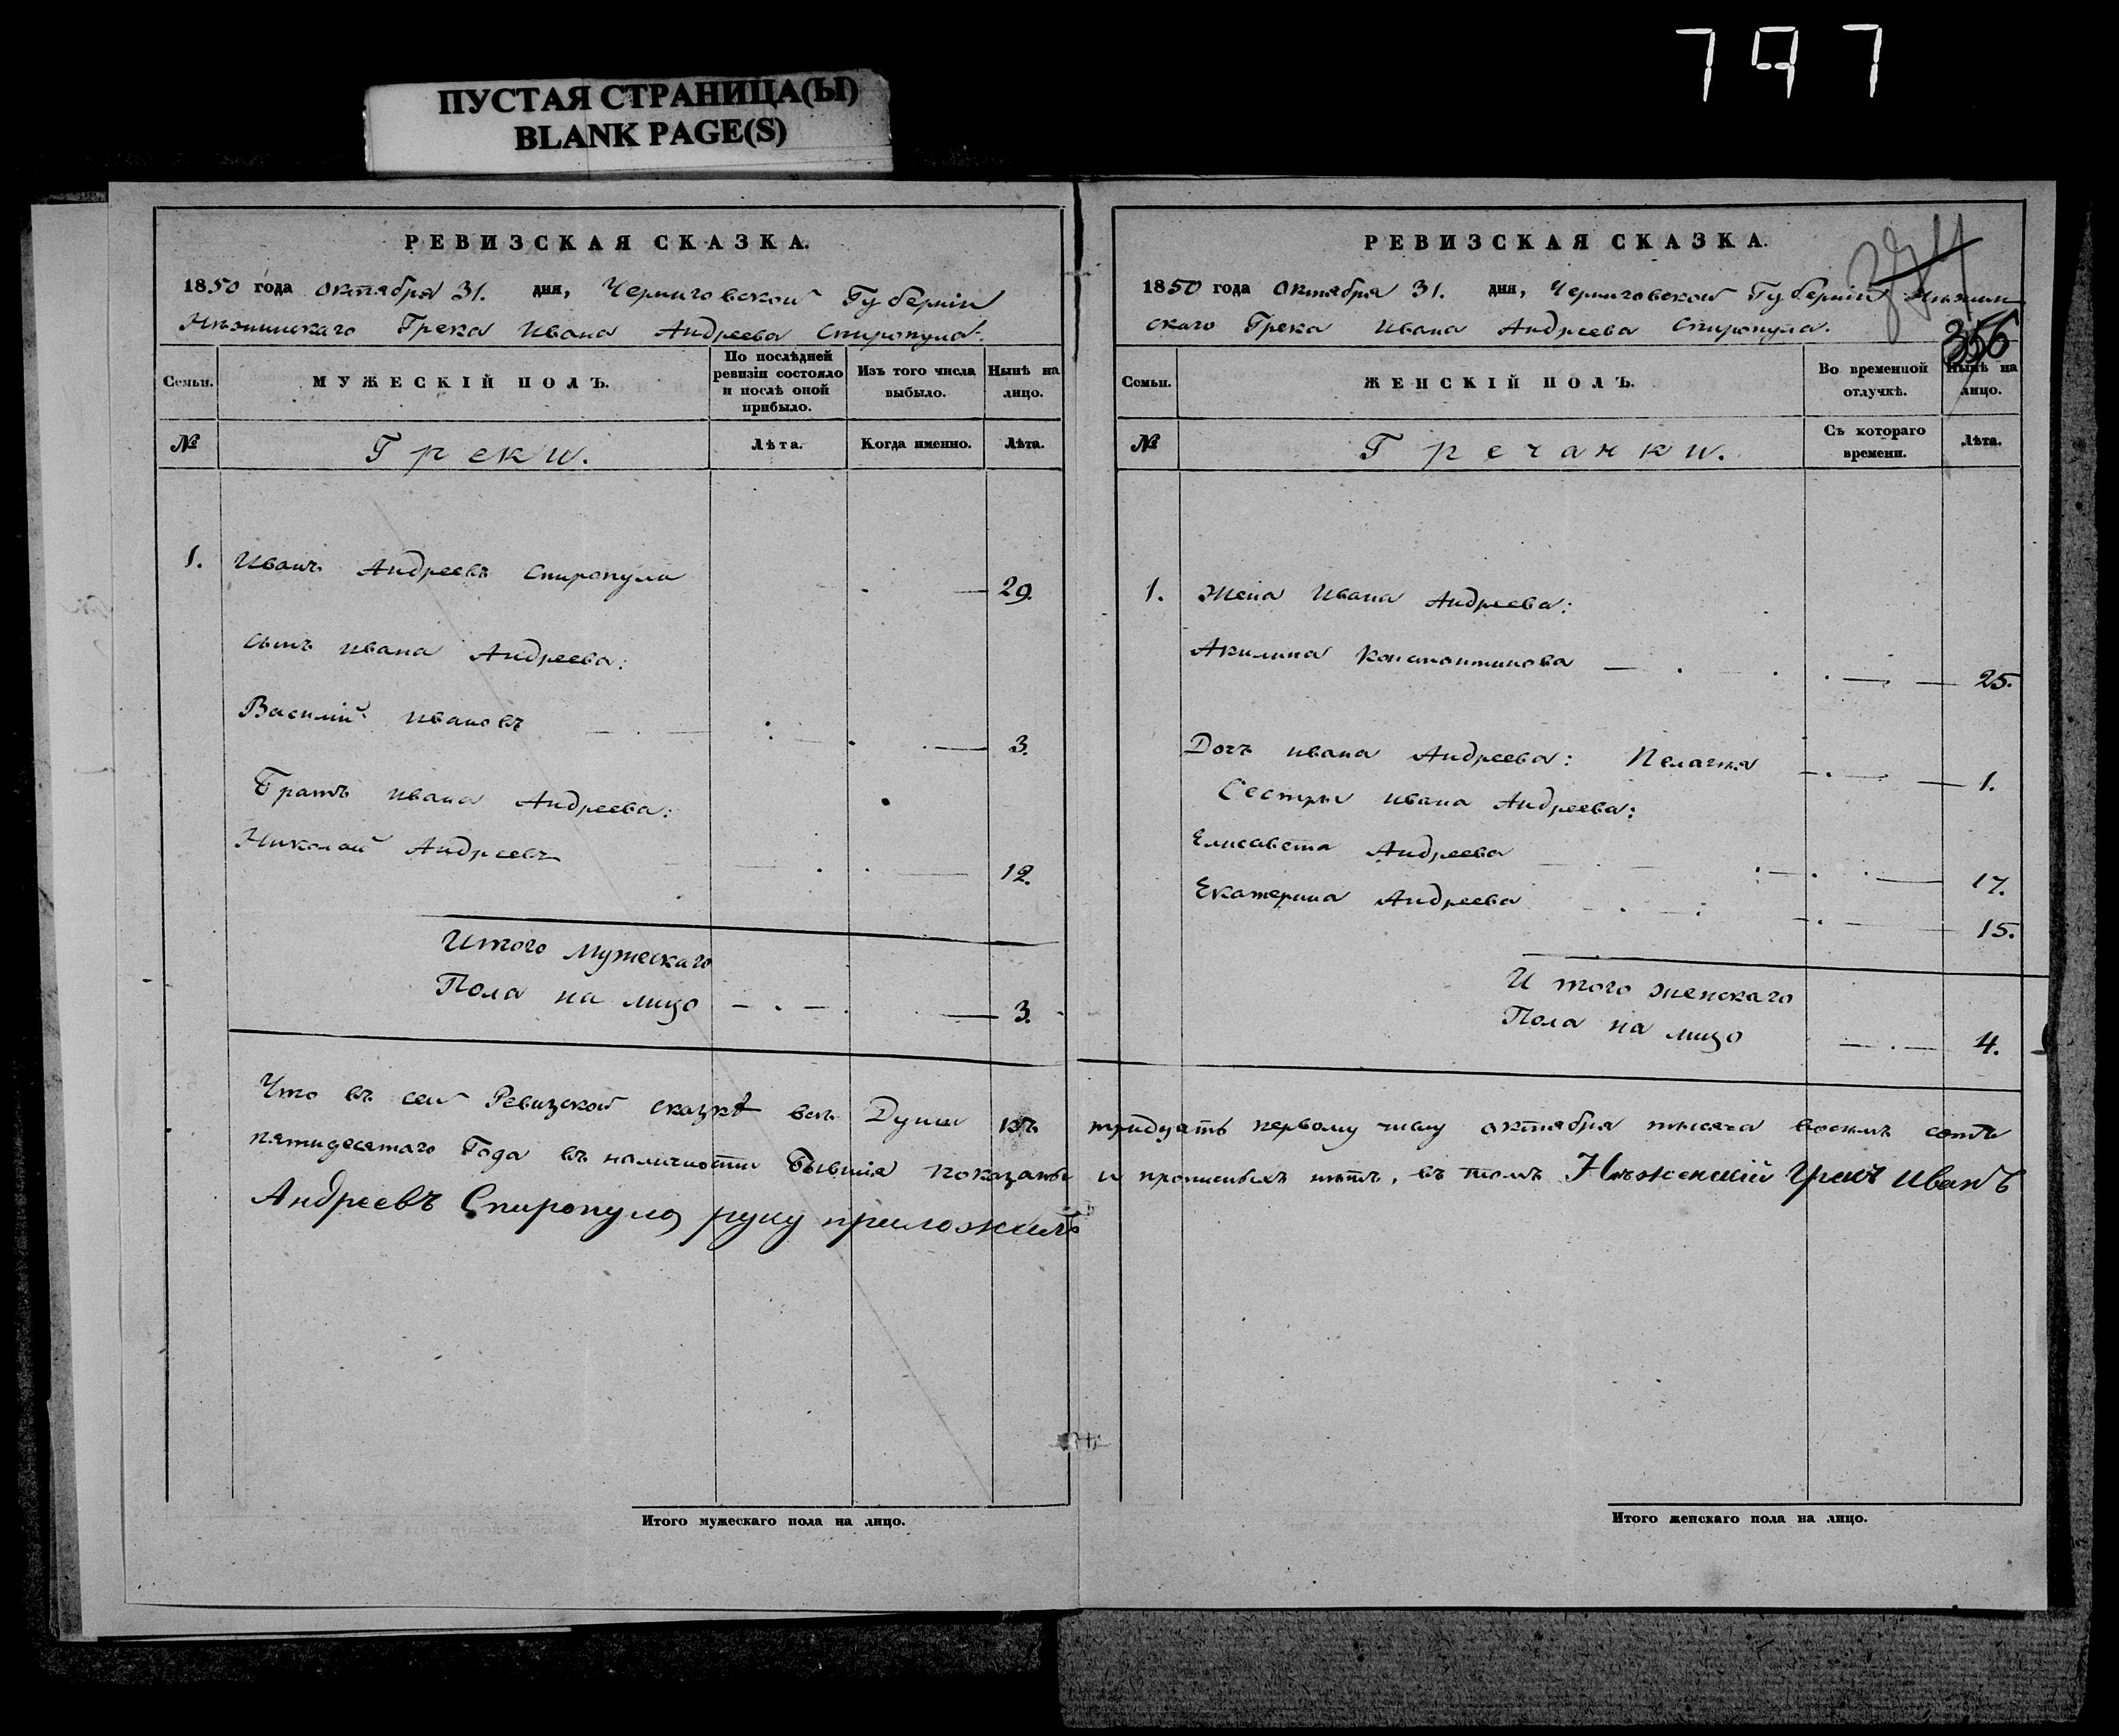 797
ПУСТАЯ СТРАНИЦА(Ы)
BLANK PAGE(S)
РЕВИЗСКАЯ СКАЗКА.
1850 года октября 31. дня, Черниговской Губерніи
Нѣжинскаго Грека Ивана Андреева Спиропула.
Семьи.
МУЖЕСКІЙ ПОЛЪ.
По послѣдней
ревизіи состояло
и послѣ оной
прибыло.
Изъ того числа
выбыло.
Нынѣ на
лицо.
№
Греки.
Лѣта.
Когда именно.
Лѣта.
1. Иванъ Андреевъ Спиропули 29.
сынъ Ивана Андреева:
Василій Ивановъ 3.
Братъ Ивана Андреева:
Николай Андреевъ 12.
Итого Мужескаго
Пола на лицо 3.
Итого мужескаго пола на лицо.
РЕВИЗСКАЯ СКАЗКА.
374
1850 года Октября 31. дня, Черниговской Губерніи Нѣжин
скаго Грека Ивана Андреева Спиропула.
356
Семьи.
ЖЕНСКІЙ ПОЛЪ.
Во временной
отлучкѣ.
Нынѣ на
лицо.
№
Гречанки.
Съ котораго
времени.
Лѣта.
1. Жена Ивана Андреева:
Акилина Константинова 25.
Дочь Ивана Андреева: Пелагия 1.
Сестры Ивана Андреева:
Елисавета Андреева 17.
Екатерина Андреева 15.
Итого женскаго
Пола на лицо 4.
Что въ сей Ревизской сказкѣ всѣ Души къ тридцать первому числу октября тысяча восемь сотъ
пятидесятаго Года въ наличности бывшія показаны и прописныхъ нѣтъ, въ томъ Нѣженскій Грекъ Иванъ
Андреевъ Спиропуло руку приложилъ
Итого женскаго пола на лицо.